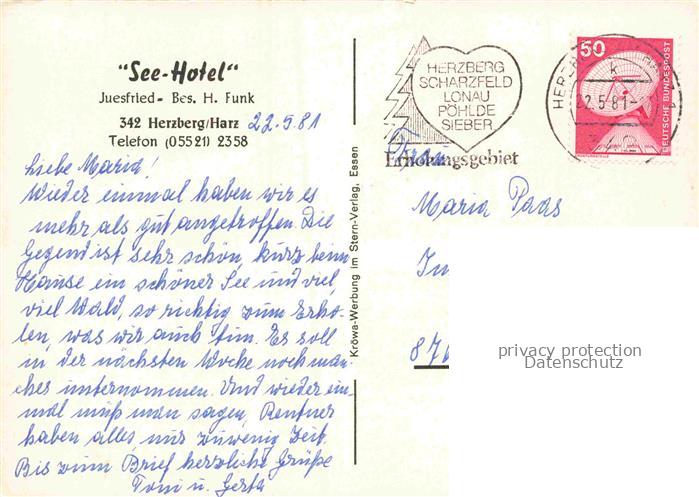 "See-Hotel"
Juesfried - Bes. H. Funk
342 Herzberg/Harz 22.5.81
Telefon (05521) 2358
Liebe Maria!
Wieder einmal haben wir es
mehr als gut angetroffen. Die
Gegend ist sehr schön, kurz beim
Hause ein schöner See und viel,
viel Wald, so richtig zum Erho-
len, was wir auch tun. Es soll
in der nächsten Woche noch man-
ches unternommen. Und wieder ein-
mal muß man sagen, Rentner
haben alles nur zuwenig Zeit.
Bis zum Brief herzliche Grüße
Toni u. Gerta
Kröwa-Werbung im Stern-Verlag, Essen
HERZBERG
SCHARZFELD
LONAU
PÖHLDE
SIEBER
Erholungsgebiet
HERZ
k
22.5.81
342
50
DEUTSCHE BUNDESPOST
Frau
Maria Paas
876
privacy protection
Datenschutz